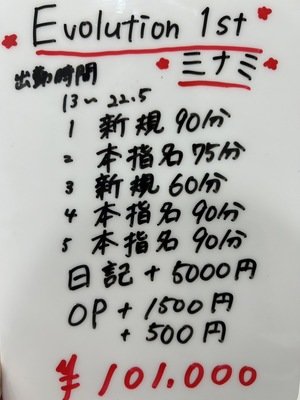 Evolution 1st
ミナミ
出勤時間
13〜22.5
1 新規 90分
2 本指名 75分
3 新規 60分
4 本指名 90分
5 本指名 90分
日記 + 5000円
OP + 1500円
+ 500円
¥101.000